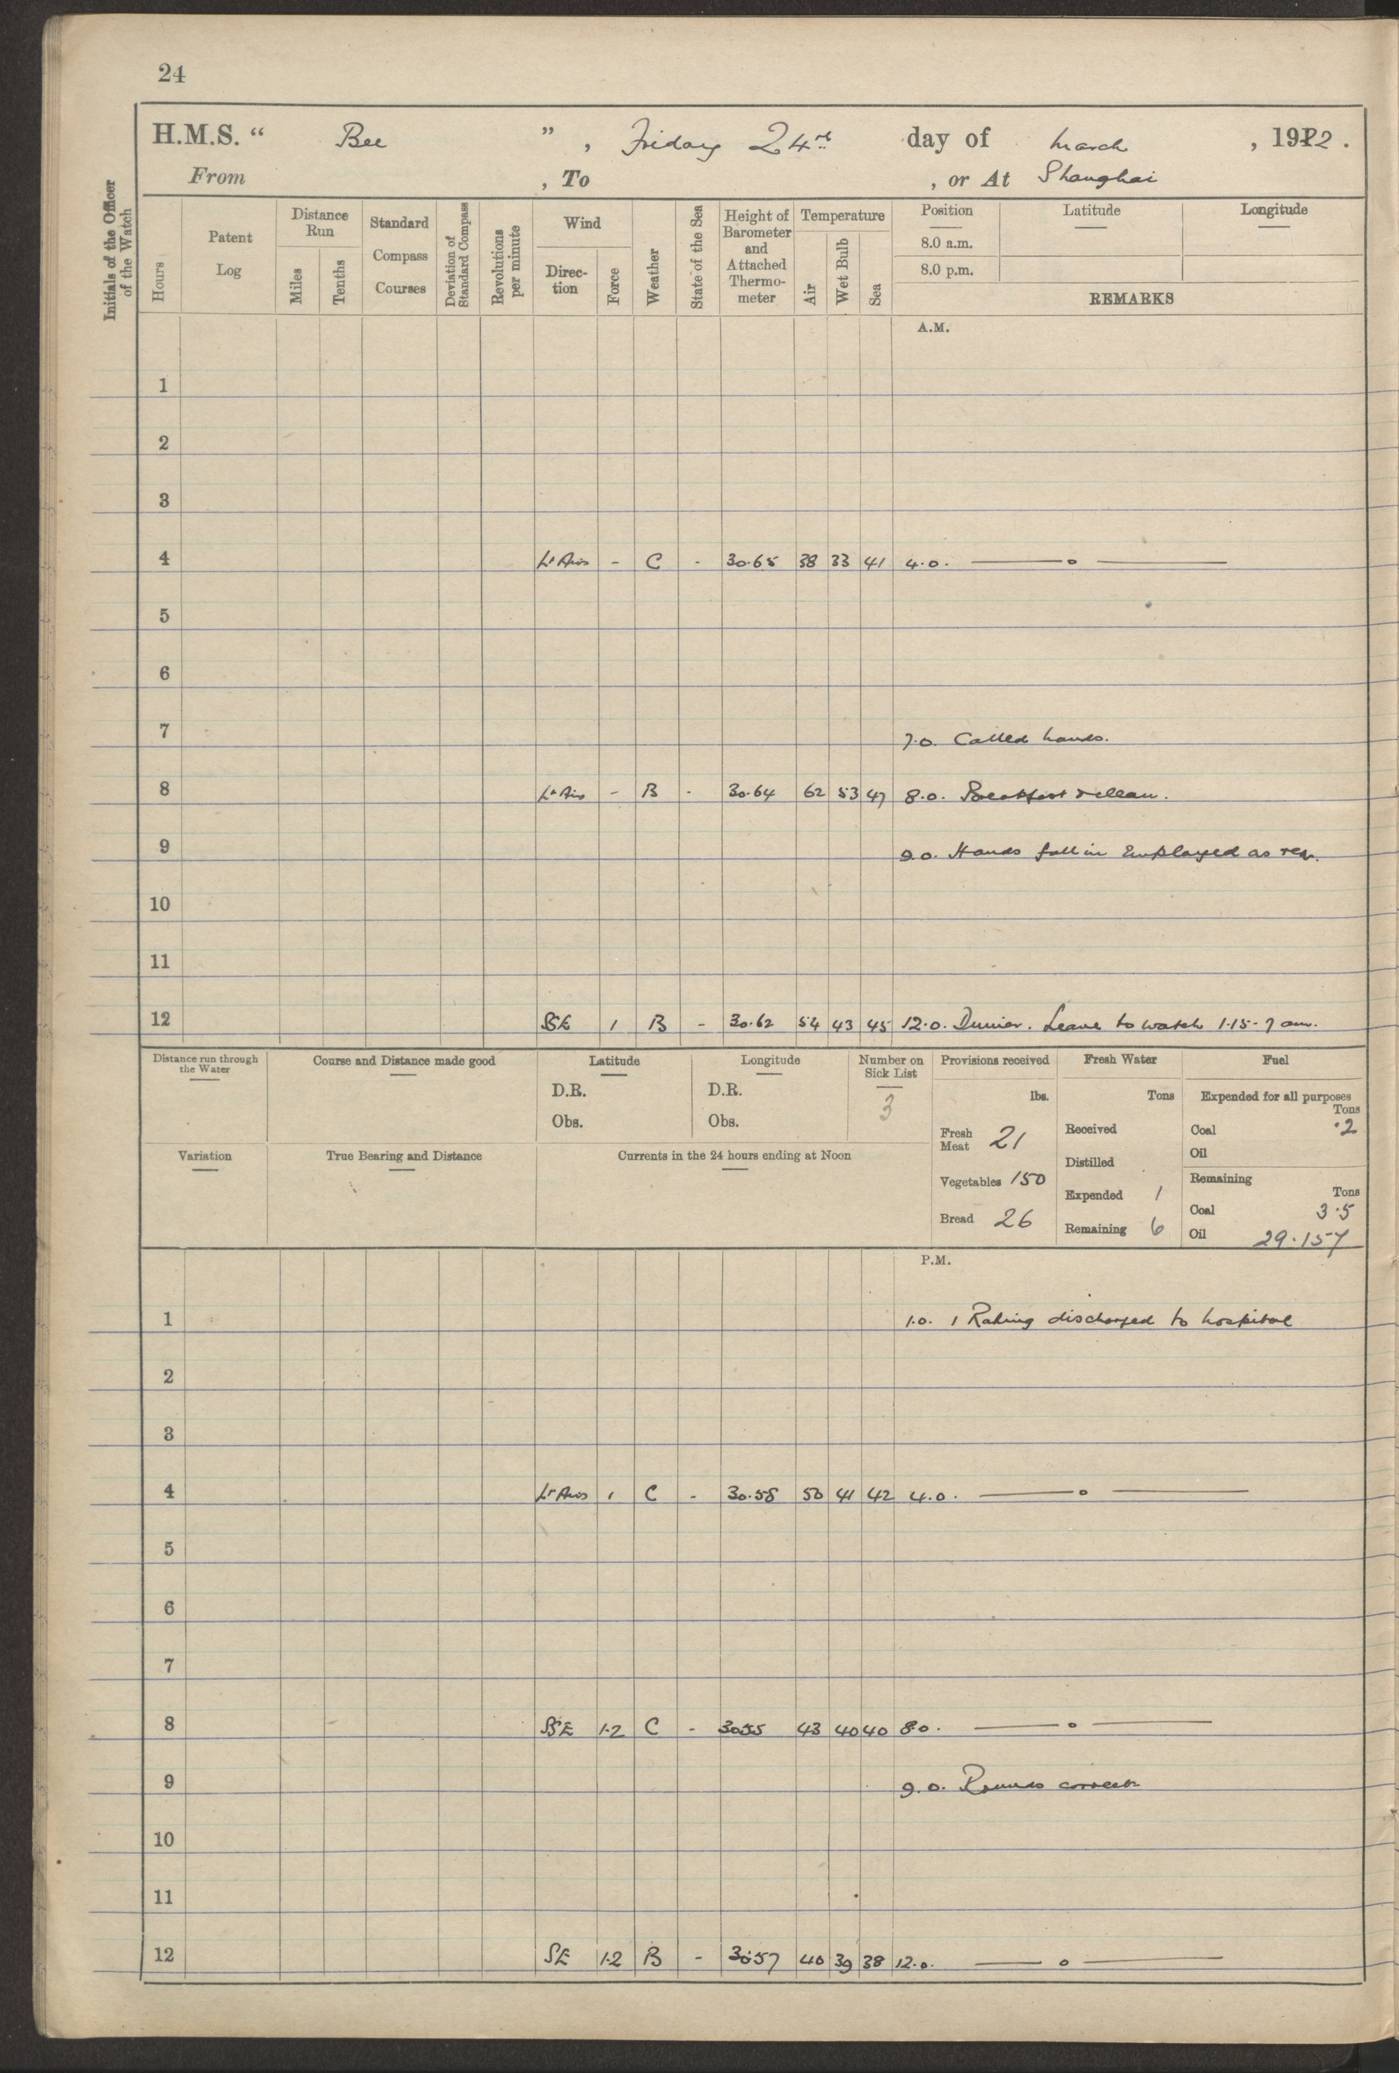 24
H.M.S. “ Bee ” , Friday 24th day of March , 1922 .
From , To , or At Shanghai
Initials of the Officer of the Watch
Hours
Patent Log
Distance Run
Miles
Tenths
Standard Compass Courses
Deviation of Standard Compass
Revolutions per minute
Wind
Direc-tion
Force
Weather
State of the Sea
Height of Barometer and Attached Thermo-meter
Temperature
Air
Wet Bulb
Sea
Position Latitude Longitude
8.0 a.m.
8.0 p.m.
REMARKS
A.M.
1
2
3
4 Lt Airs - C - 30.65 38 33 41 4.0. —— o ——
5
6
7 7.0. Called hands.
8 Lt Airs - B - 30.64 62 53 47 8.0. Breakfast & clean.
9 9.0. Hands fall in Employed as req.
10
11
12 SSE 1 B - 30.62 54 43 45 12.0. Dinner. Leave to watch 1.15 - 7 am.
Distance run through the Water
Course and Distance made good
Latitude
D.R.
Obs.
Longitude
D.R.
Obs.
Number on Sick List
3
Provisions received
lbs.
Fresh Meat 21
Vegetables 150
Bread 26
Fresh Water
Tons
Received
Distilled
Expended 1
Remaining 6
Fuel
Expended for all purposes
Tons
Coal .2
Oil
Remaining
Tons
Coal 3.5
Oil 29.157
Variation
True Bearing and Distance
Currents in the 24 hours ending at Noon
P.M.
1 1.0. 1 Rating discharged to hospital
2
3
4 Lt Airs 1 C - 30.58 50 41 42 4.0. —— o ——
5
6
7
8 SSE 1.2 C - 30.55 43 40 40 8.0. —— o ——
9 9.0. Rounds correct
10
11
12 SE 1.2 B - 30.57 40 39 38 12.0. —— o ——